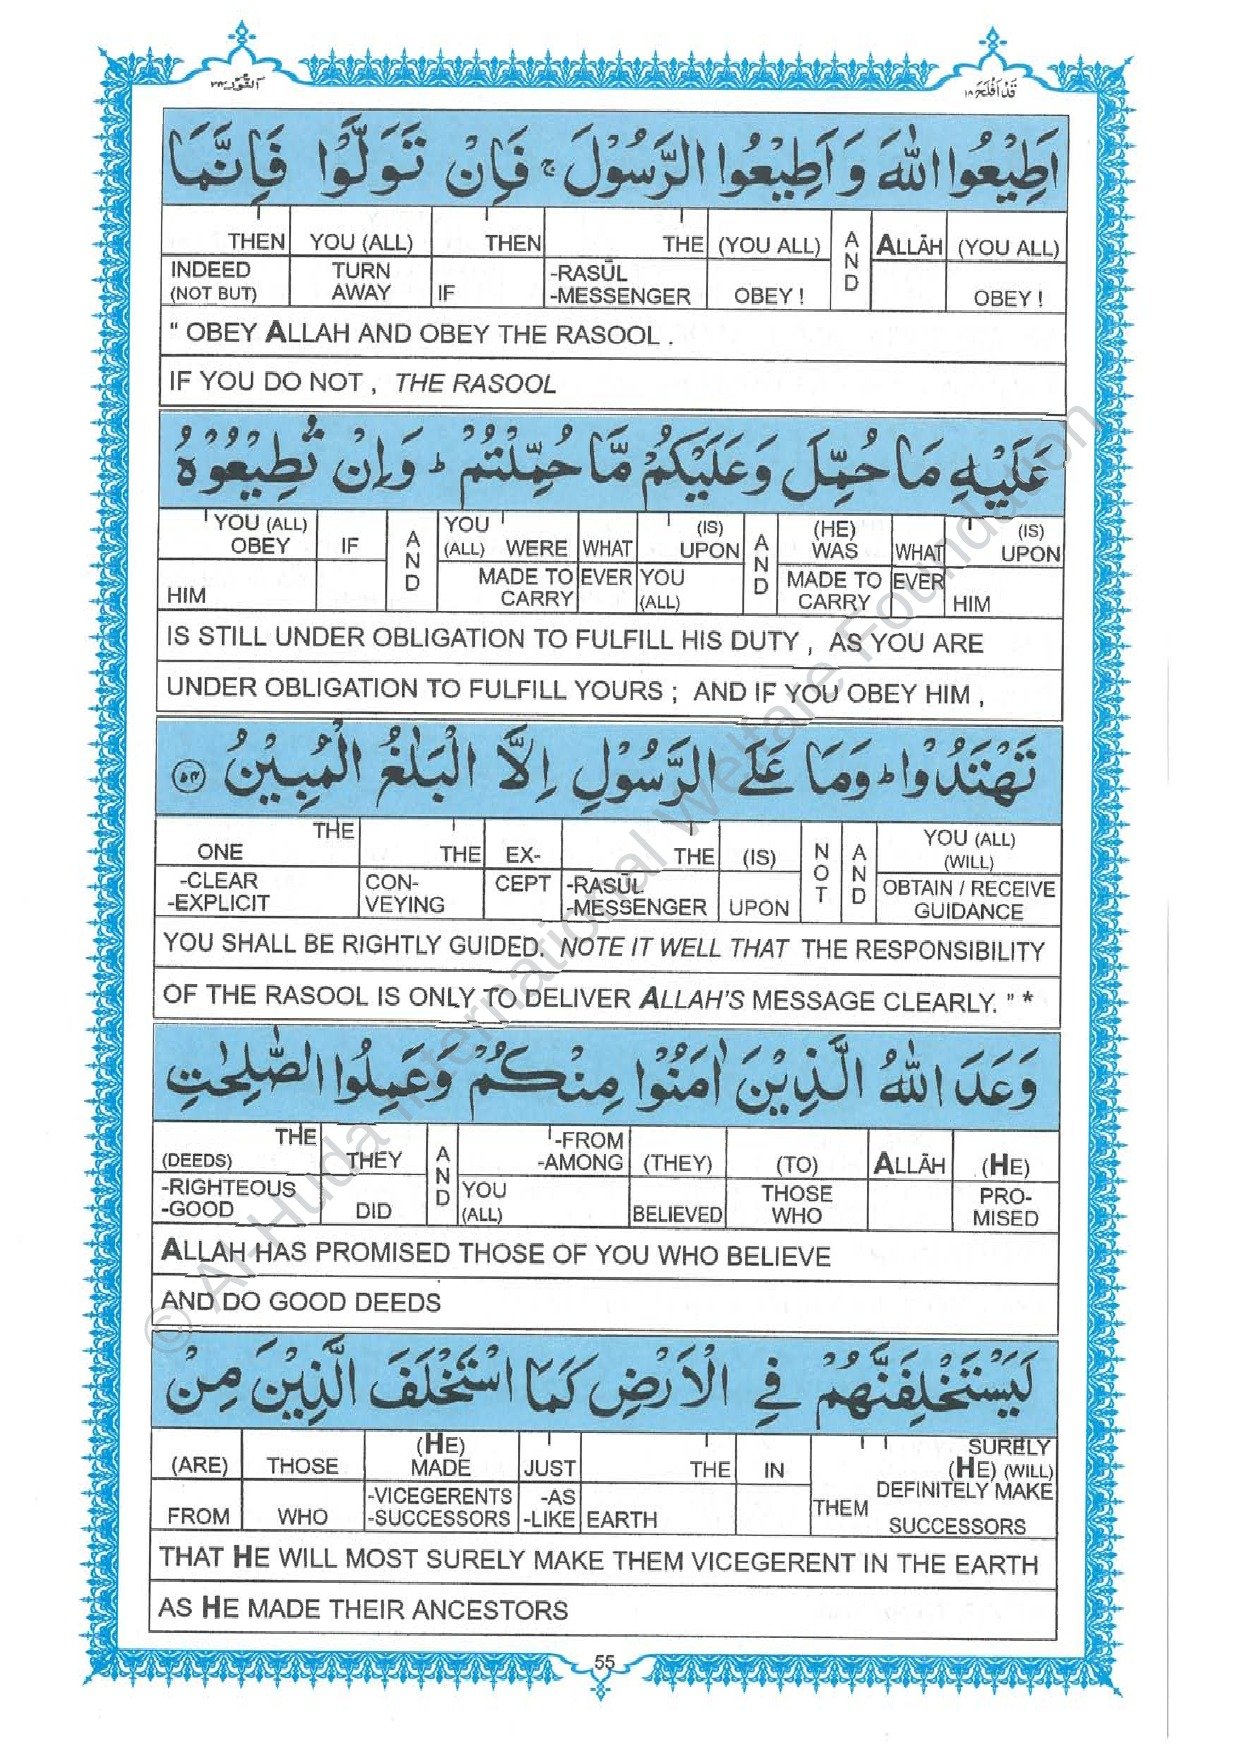 النور ٢٤
قد افلح ١٨
اَطِيْعُوا اللّٰهَ وَ اَطِيْعُوا الرَّسُوْلَ ۚ فَاِنْ تَوَلَّوْا فَاِنَّمَا
THEN YOU (ALL) THEN THE (YOU ALL) AND ALLĀH (YOU ALL)
INDEED TURN -RASŪL
(NOT BUT) AWAY IF -MESSENGER OBEY ! OBEY !
" OBEY ALLAH AND OBEY THE RASOOL .
IF YOU DO NOT , THE RASOOL
عَلَيْهِ مَا حُمِّلَ وَعَلَيْكُمْ مَّا حُمِّلْتُمْ ؕ وَاِنْ تُطِيْعُوْهُ
YOU (ALL) YOU (IS) (HE) (IS)
OBEY IF AND (ALL) WERE WHAT UPON AND WAS WHAT UPON
MADE TO EVER YOU MADE TO EVER
HIM CARRY (ALL) CARRY HIM
IS STILL UNDER OBLIGATION TO FULFILL HIS DUTY , AS YOU ARE
UNDER OBLIGATION TO FULFILL YOURS ; AND IF YOU OBEY HIM ,
تَهْتَدُوْا ؕ وَمَا عَلَى الرَّسُوْلِ اِلَّا الْبَلٰغُ الْمُبِيْنُ ﴿۵۴﴾
THE YOU (ALL)
ONE THE EX- THE (IS) NOT AND (WILL)
-CLEAR CON- CEPT -RASŪL OBTAIN / RECEIVE
-EXPLICIT VEYING -MESSENGER UPON GUIDANCE
YOU SHALL BE RIGHTLY GUIDED. NOTE IT WELL THAT THE RESPONSIBILITY
OF THE RASOOL IS ONLY TO DELIVER ALLAH'S MESSAGE CLEARLY. " *
وَعَدَ اللّٰهُ الَّذِيْنَ اٰمَنُوْا مِنْكُمْ وَعَمِلُوا الصّٰلِحٰتِ
THE -FROM
(DEEDS) THEY AND -AMONG (THEY) (TO) ALLĀH (HE)
-RIGHTEOUS YOU THOSE PRO-
-GOOD DID (ALL) BELIEVED WHO MISED
ALLAH HAS PROMISED THOSE OF YOU WHO BELIEVE
AND DO GOOD DEEDS
لَيَسْتَخْلِفَنَّهُمْ فِي الْاَرْضِ كَمَا اسْتَخْلَفَ الَّذِيْنَ مِنْ
(HE) SURELY
(ARE) THOSE MADE JUST THE IN (HE) (WILL)
-VICEGERENTS -AS DEFINITELY MAKE
FROM WHO -SUCCESSORS -LIKE EARTH THEM SUCCESSORS
THAT HE WILL MOST SURELY MAKE THEM VICEGERENT IN THE EARTH
AS HE MADE THEIR ANCESTORS
55
© Al-Huda International Welfare Foundation